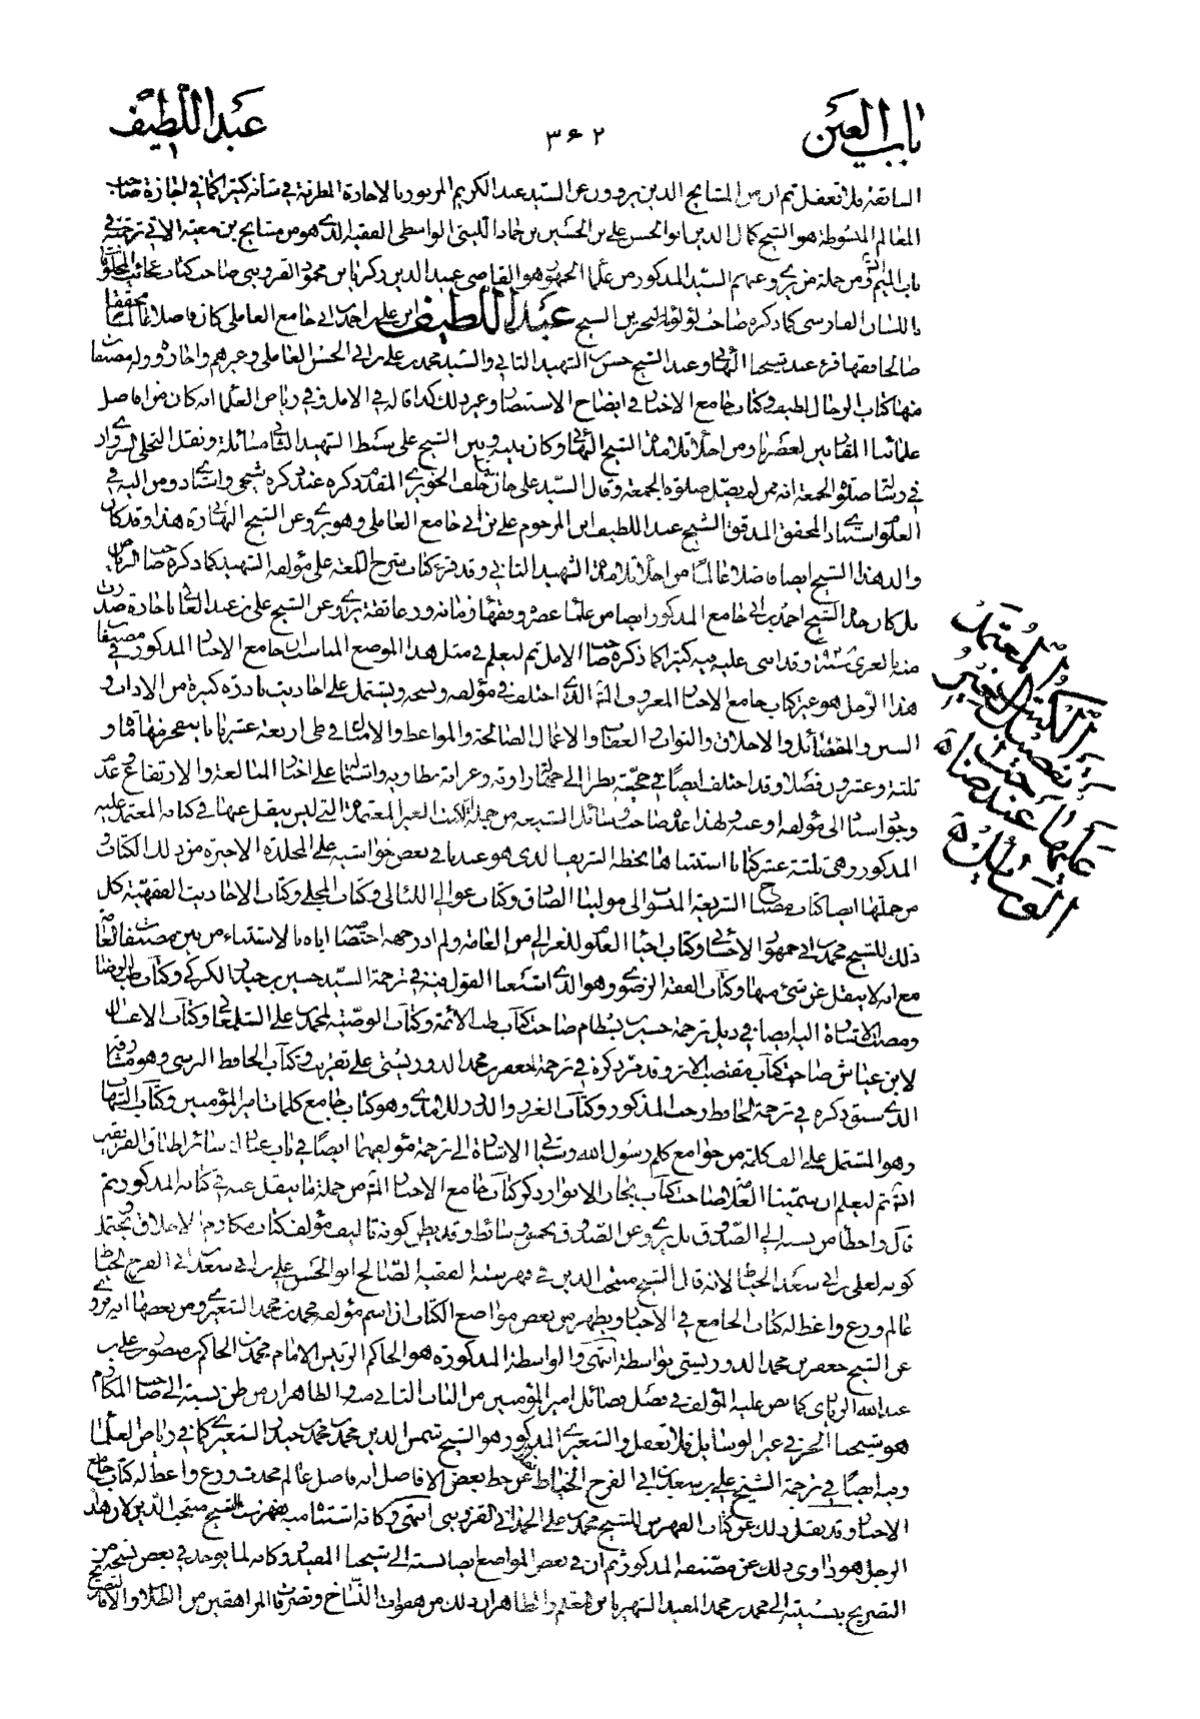 باب العين
٣٤٢
عبد اللطيف
السابقة فلا تغفل ثم ان من المشايخ الذين يروون عن السيد عبد الكريم المزبور بالاجازة في شانه كثيرا كما في اجازة صاحب
المعالم المبسوطة هو الشيخ كمال الدين ابو الحسن علي بن الحسين بن حماد الليثي الواسطي الفقيه الذي هو من مشايخ بن معية الاتي ترجمته في
باب الميم ومن جملة من يروي عنهم السيد المذكور من علماء الجمهور هو القاضي عميد الدين زكريا بن محمود القزويني صاحب كتاب عجائب المخلوقات
باللسان الفارسي كما ذكره صاحب لؤلؤة البحرين الشيخ عبد اللطيف ابن علي بن احمد بن ابي جامع العاملي كان فاضلا عالما محققا
صالحا فقيها قرء عند شيخنا البهائي وعند الشيخ حسن بن الشهيد الثاني والسيد محمد بن علي بن ابي الحسن العاملي وغيرهم واجازوه وله مصنفات
منها كتاب الرجال لطيف وكتاب جامع الاخبار في ايضاح الاستبصار وغير ذلك كذا قاله في الامل وفي رياض العلماء انه كان من افاضل
علمائنا المقاربين لعصرنا ومن اجلاء تلامذة الشيخ البهائي وكان بينه وبين الشيخ علي سبط الشهيد الثاني مسائلة ونقل
في رسالة صلوة الجمعة انه ممن لم يصل صلوة الجمعة وقال السيد علي خان بن خلف الحويزي المقدم ذكره عند ذكره شيخي واستادي ومن اليه في
العلوم استنادي المحقق المدقق الشيخ عبد اللطيف ابن المرحوم علي بن ابي جامع العاملي وهو يروي عن الشيخ البهائي ره هذا وقد كان
والد هذا الشيخ ايضا فاضلا عالما من اجلاء تلامذة الشهيد الثاني وقد قرء كتاب شرح اللمعة على مؤلفه الشهيد كما ذكره صاحب الرياض
بل كان جده الشيخ احمد بن ابي جامع المذكور ايضا من علماء عصره وفقهاء زمانه ورعا ثقة يروي عن الشيخ علي بن عبد العالي باجازة صدرت
منه بالغري سنة وقد اثنى عليه فيه كثيرا كما ذكره صاحب الامل ثم ليعلم في مثل هذا الموضع المناسب ان جامع الاخبار المذكور في مصنفات
هذا الرجل هو غير كتاب جامع الاخبار المعروف الذي اختلف في مؤلفه ونسخه ويشتمل على احاديث نادرة كثيرة من الاداب و
السنن والفضائل والاخلاق والثواب والعقاب والاعمال الصالحة والمواعظ والامثال في طي اربعة عشر بابا ينفجر منها مائة و
ثلثة وعشرون فصلا وقد اختلف ايضا في حجيته نظرا الى جهالة راويه وغرابة مطاويه واشتمالها على اخبار المبالغة والارتفاع وعدم
وجود اسناد الى مؤلفه اوعنه ولهذا عده صاحب وسائل الشيعة من جملة الكتب الغير المعتمدة التي ليس ينقل عنها في كتابه المعتمد عليه
المذكور وهي ثلثة عشر كتابا استثناها بخطه الشريف الذي هو عندنا في بعض حواشيه على المجلدة الاخيرة من ذلك الكتاب
من جملتها ايضا كتاب مصباح الشريعة المنسوب الى مولينا الصادق وكتاب عوالي اللئالي وكتاب المجلي وكتاب الاحاديث الفقهية كل
ذلك للشيخ محمد بن ابي جمهور الاحسائي وكتاب احياء العلوم للغزالي من العامة ولم ادر جهة اختصاصه اياه بالاستثناء من بين مصنفات العامة
مع انه لا ينقل عن شيء منها وكتاب الفقه الرضوي وهو الذي اشبعنا القول فيه في ترجمة السيد حسين بن حيدر الكركي وكتاب طب الرضا
ومضت الاشارة اليه ايضا في ذيل ترجمة حسين بن بسطام صاحب كتاب طب الائمة وكتاب الوصية لمحمد بن علي الشلمغاني وكتاب الاغسال
لابن عياش صاحب كتاب مقتضب الاثر وقد مر ذكره في ترجمة جعفر بن محمد الدوريستي على تقريب وكتاب الحافظ البرسي وهو مشارق
الذي سبق ذكره في ترجمة الحافظ رجب المذكور وكتاب الغرر والدرر للامدي وهو كتاب جامع كلمات امير المؤمنين وكتاب الشهاب
وهو المشتمل على الف كلمة من جوامع كلم رسول الله وسياتي الاشارة الى ترجمة مؤلفهما ايضا في باب سائر اطباق الفريقين
انشاء الله ثم ليعلم ان سمينا العلامة صاحب كتاب بحار الانوار ذكر كتاب جامع الاخبار من جملة ما ينقل عنه في كتابه المذكور ثم
قال واخطا من نسبه الى الصدوق بل يروي عن الصدوق بخمس وسائط وقد يظن كونه تاليف مؤلف كتاب مكارم الاخلاق ويحتمل
كونه لعلي بن ابي سعد الخياط لانه قال الشيخ منتجب الدين في فهرسته الفقيه الصالح ابو الحسن علي بن ابي سعد بن ابي الفرج الخياط
عالم ورع واعظ له كتاب الجامع في الاخبار ويظهر من بعض مواضع الكتاب ان اسم مؤلفه محمد بن محمد الشعيري ومن بعضها انه يروي
عن الشيخ جعفر بن محمد الدوريستي بواسطة انتهى والواسطة المذكورة هو الحاكم الرئيس الامام محمد الحاكم منصور علي بن
عبد الله الزيادي كما نص عليه المؤلف في فضل فضائل امير المؤمنين من الباب الثاني الظاهر ان من ظن نسبته الى صاحب المكارم
هو شيخنا الحر في غير الوسايل فلا تغفل والشعيري المذكور هو الشيخ شمس الدين محمد بن محمد بن حيدر الشعيري كما في رياض العلماء
وفيه ايضا في ترجمة الشيخ علي بن سعد بن ابي الفرج الخياط عن خط بعض الافاضل انه فاضل عالم محدث ورع واعظ له كتاب جامع
الاخبار وقد ينقل ذلك عن كتاب الفهرس للشيخ محمد بن علي الحمداني القزويني انتهى وكانه اشتباه بفهرست الشيخ منتجب الدين لان هذا
الرجل هو راوي ذلك عن مصنفه المذكور ثم ان في بعض المواضع ايضا نسبته الى شيخنا المفيد وكانه لما يوجد في بعض نسخه من
التصريح بنسبته الى محمد بن محمد المفيد الشهير بابن المعلم والظاهر ان ذلك من هفوات النساخ وتصرفات المراهقين من الطلاب والله
الكتب الغير المعتمد
عليها عند صاحب
الوسائل ره